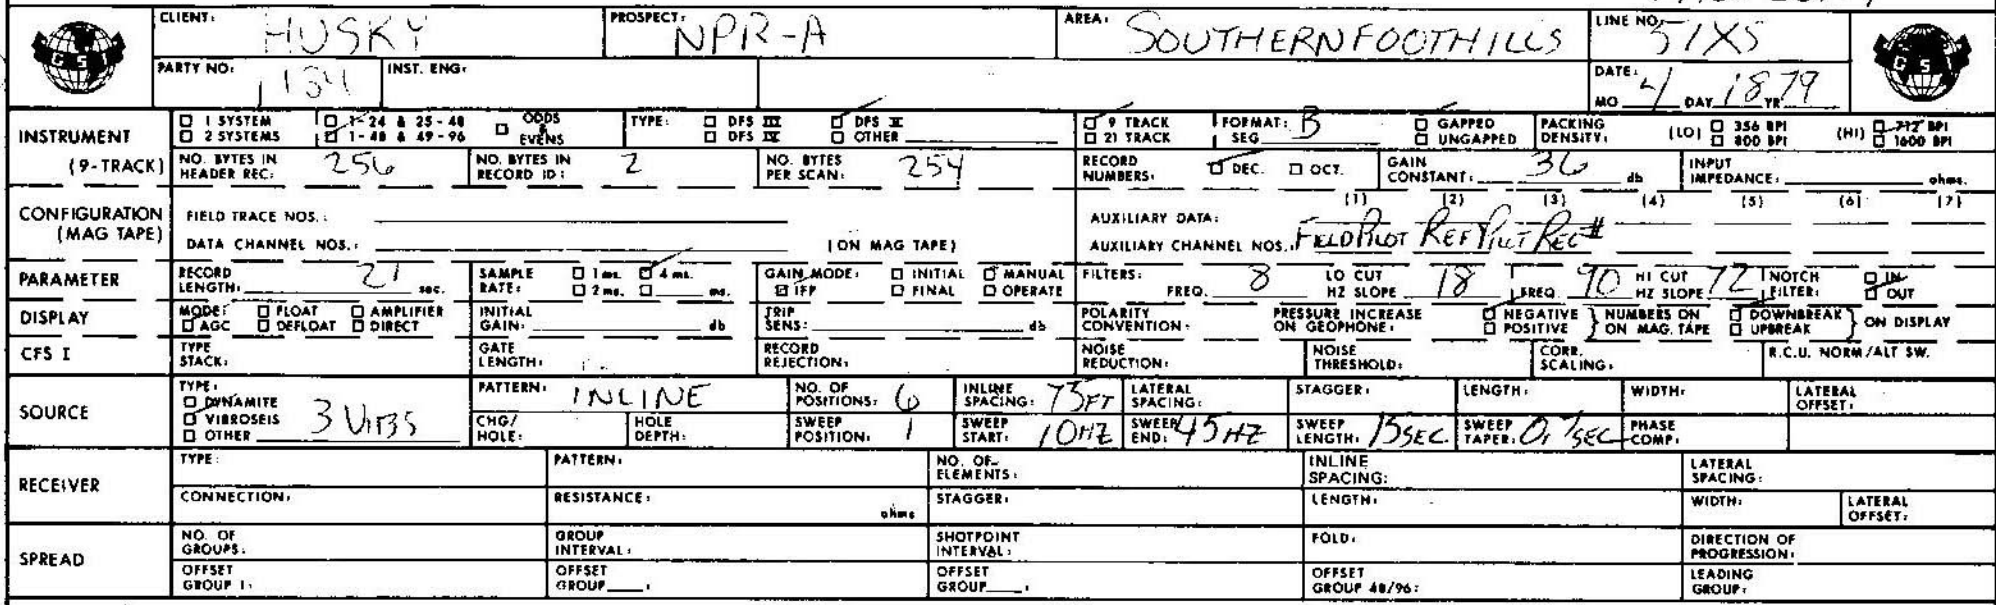 CLIENT: HUSKY PROSPECT: NPR-A AREA: SOUTHERN FOOTHILLS LINE NO. 51X5
GSI PARTY NO: 134 INST. ENG: DATE: MO 4 DAY 18 YR 79 GSI
INSTRUMENT (9-TRACK) □ 1 SYSTEM □ 1-24 & 25-48 □ ODDS & EVENS TYPE: □ DFS III □ DFS V □ 9 TRACK FORMAT: B □ GAPPED PACKING DENSITY: (LO) □ 356 BPI (HI) □ 712 BPI
□ 2 SYSTEMS □ 1-48 & 49-96 □ DFS IV □ OTHER □ 21 TRACK SEG □ UNGAPPED □ 800 BPI □ 1600 BPI
NO. BYTES IN HEADER REC: 256 NO. BYTES IN RECORD ID: 2 NO. BYTES PER SCAN: 254 RECORD NUMBERS: □ DEC. □ OCT. GAIN CONSTANT: 36 db INPUT IMPEDANCE: ohms.
CONFIGURATION (MAG TAPE) FIELD TRACE NOS.: AUXILIARY DATA: (1) (2) (3) (4) (5) (6) (7)
DATA CHANNEL NOS.: (ON MAG TAPE) AUXILIARY CHANNEL NOS. FIELD PILOT REF PILOT REC #
PARAMETER RECORD LENGTH: 21 sec. SAMPLE RATE: □ 1 ms. □ 4 ms. □ 2 ms. □ ms. GAIN MODE: □ INITIAL □ MANUAL □ IFP □ FINAL □ OPERATE FILTERS: FREQ. 8 LO CUT HZ SLOPE 18 FREQ 90 HI CUT HZ SLOPE 72 NOTCH FILTER: □ IN □ OUT
DISPLAY MODE: □ FLOAT □ AMPLIFIER □ AGC □ DEFLOAT □ DIRECT INITIAL GAIN: db TRIP SENS: db POLARITY CONVENTION: PRESSURE INCREASE ON GEOPHONE: □ NEGATIVE □ POSITIVE NUMBERS ON ON MAG. TAPE □ DOWNBREAK □ UPBREAK ON DISPLAY
CFS I TYPE STACK: GATE LENGTH: RECORD REJECTION: NOISE REDUCTION: NOISE THRESHOLD: CORR. SCALING: R.C.U. NORM/ALT SW.
SOURCE TYPE: □ DYNAMITE □ VIBROSEIS □ OTHER 3 VIBS PATTERN: INLINE NO. OF POSITIONS: 6 INLINE SPACING: 75 FT LATERAL SPACING: STAGGER: LENGTH: WIDTH: LATERAL OFFSET:
CHG/HOLE: HOLE DEPTH: SWEEP POSITION: 1 SWEEP START: 10 HZ SWEEP END: 45 HZ SWEEP LENGTH: 15 SEC. SWEEP TAPER: SEC PHASE COMP:
RECEIVER TYPE: PATTERN: NO. OF ELEMENTS: INLINE SPACING: LATERAL SPACING:
CONNECTION: RESISTANCE: ohms STAGGER: LENGTH: WIDTH: LATERAL OFFSET:
SPREAD NO. OF GROUPS: GROUP INTERVAL: SHOTPOINT INTERVAL: FOLD: DIRECTION OF PROGRESSION:
OFFSET GROUP 1: OFFSET GROUP : OFFSET GROUP : OFFSET GROUP 48/96: LEADING GROUP: